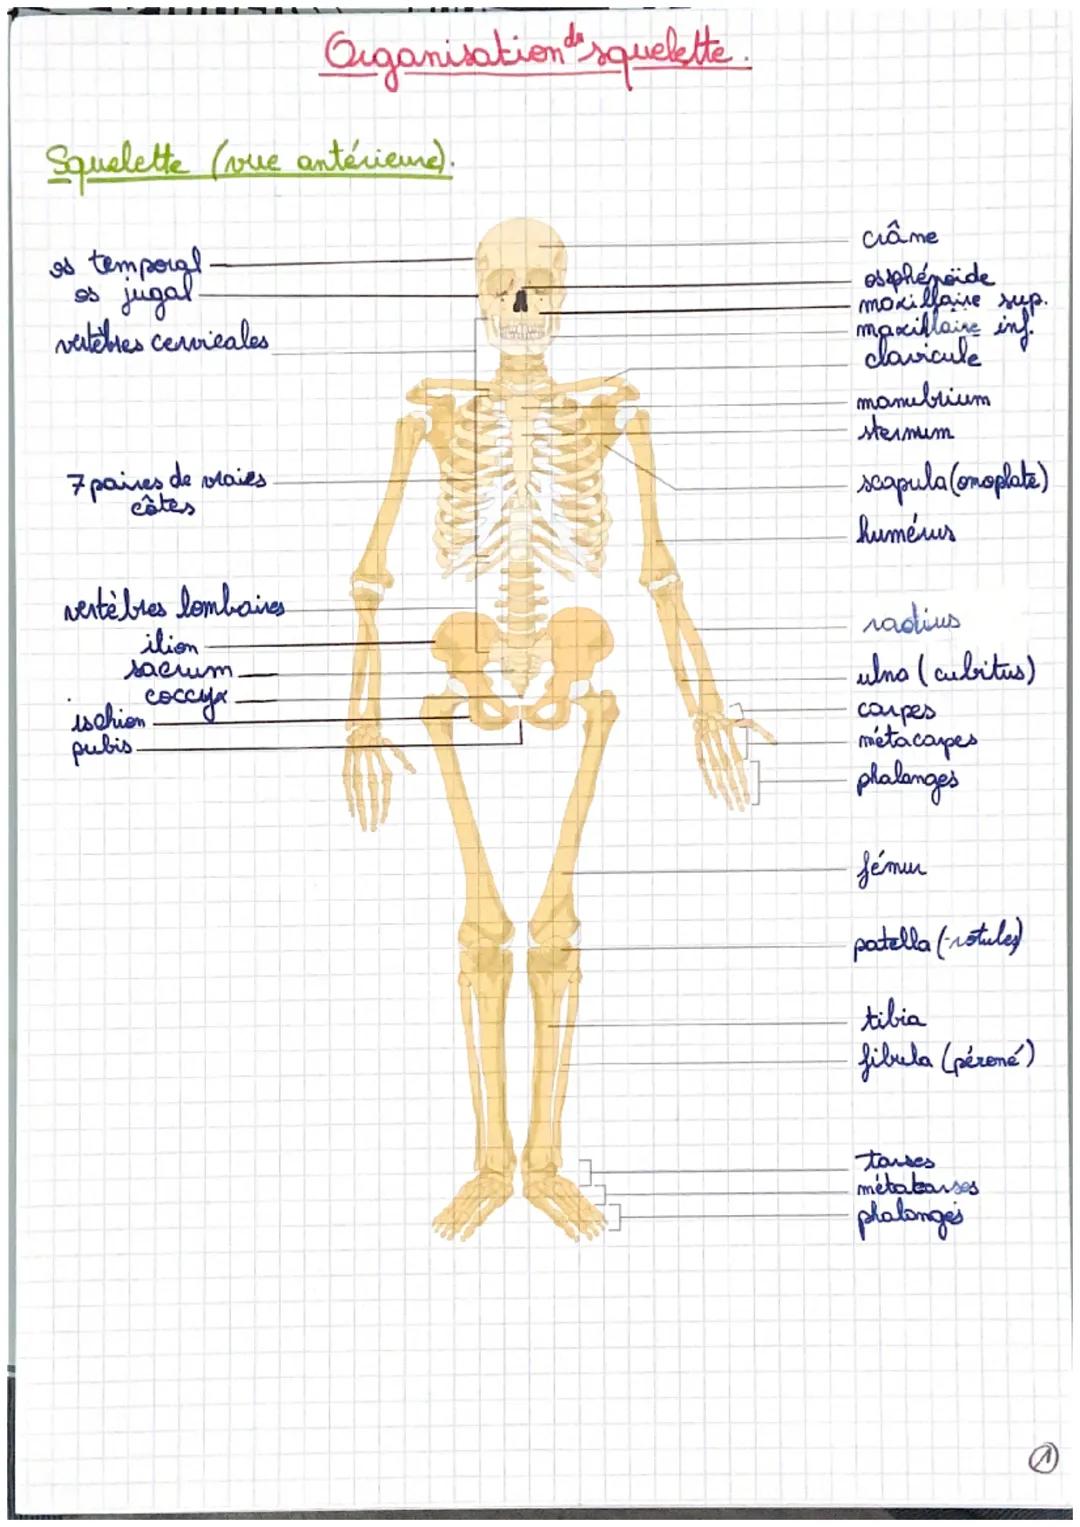 Organisation du squelette.
Squelette (vue antérieure).
os temporal
os jugal
vertèbres cervicales
7 paires de vraies
côtes
vertèbres lombaires
ilion
sacrum
coccyx
ischion
pubis
crâne
os sphénoïde
maxillaire sup.
maxillaire inf.
clavicule
manubrium
sternum
scapula (omoplate)
humérus
radius
ulna (cubitus)
carpes
métacarpes
phalanges
fémur
patella (rotules)
tibia
fibula (péroné)
tarses
métatarses
phalanges
1